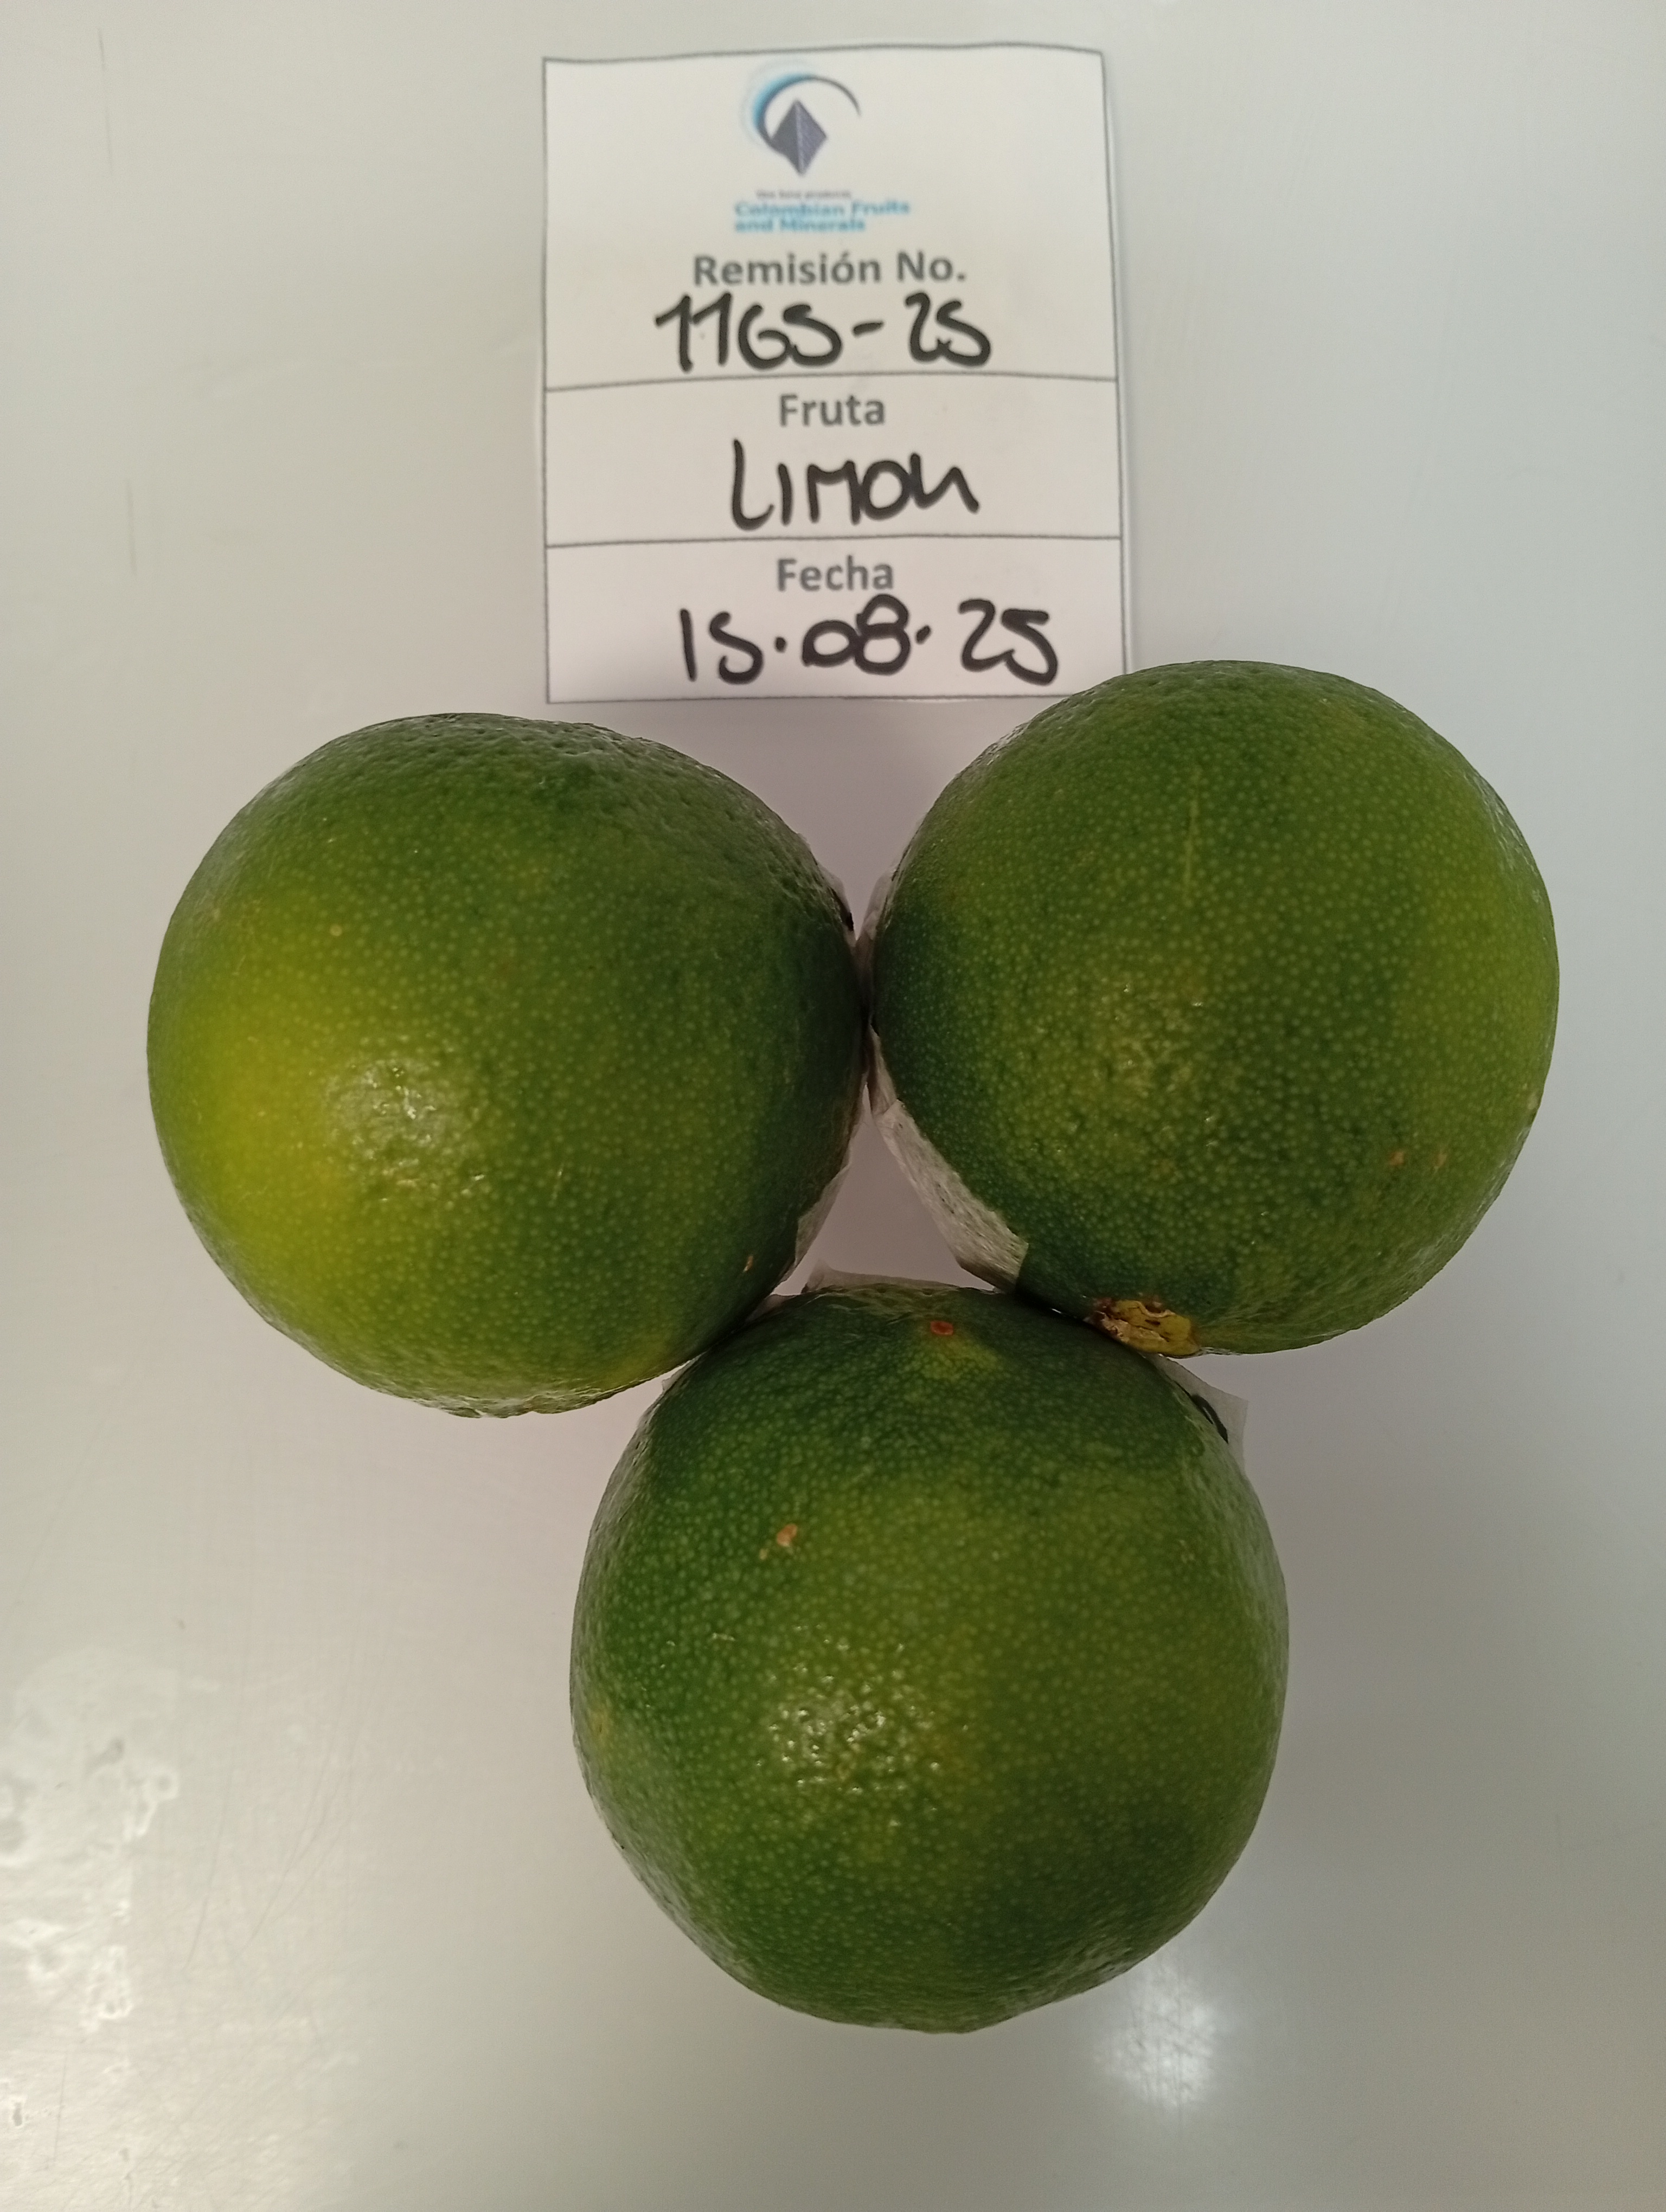 Colombian Fruits
and Minerals
Remisión No.
1165-25
Fruta
LIMON
Fecha
15.08.25